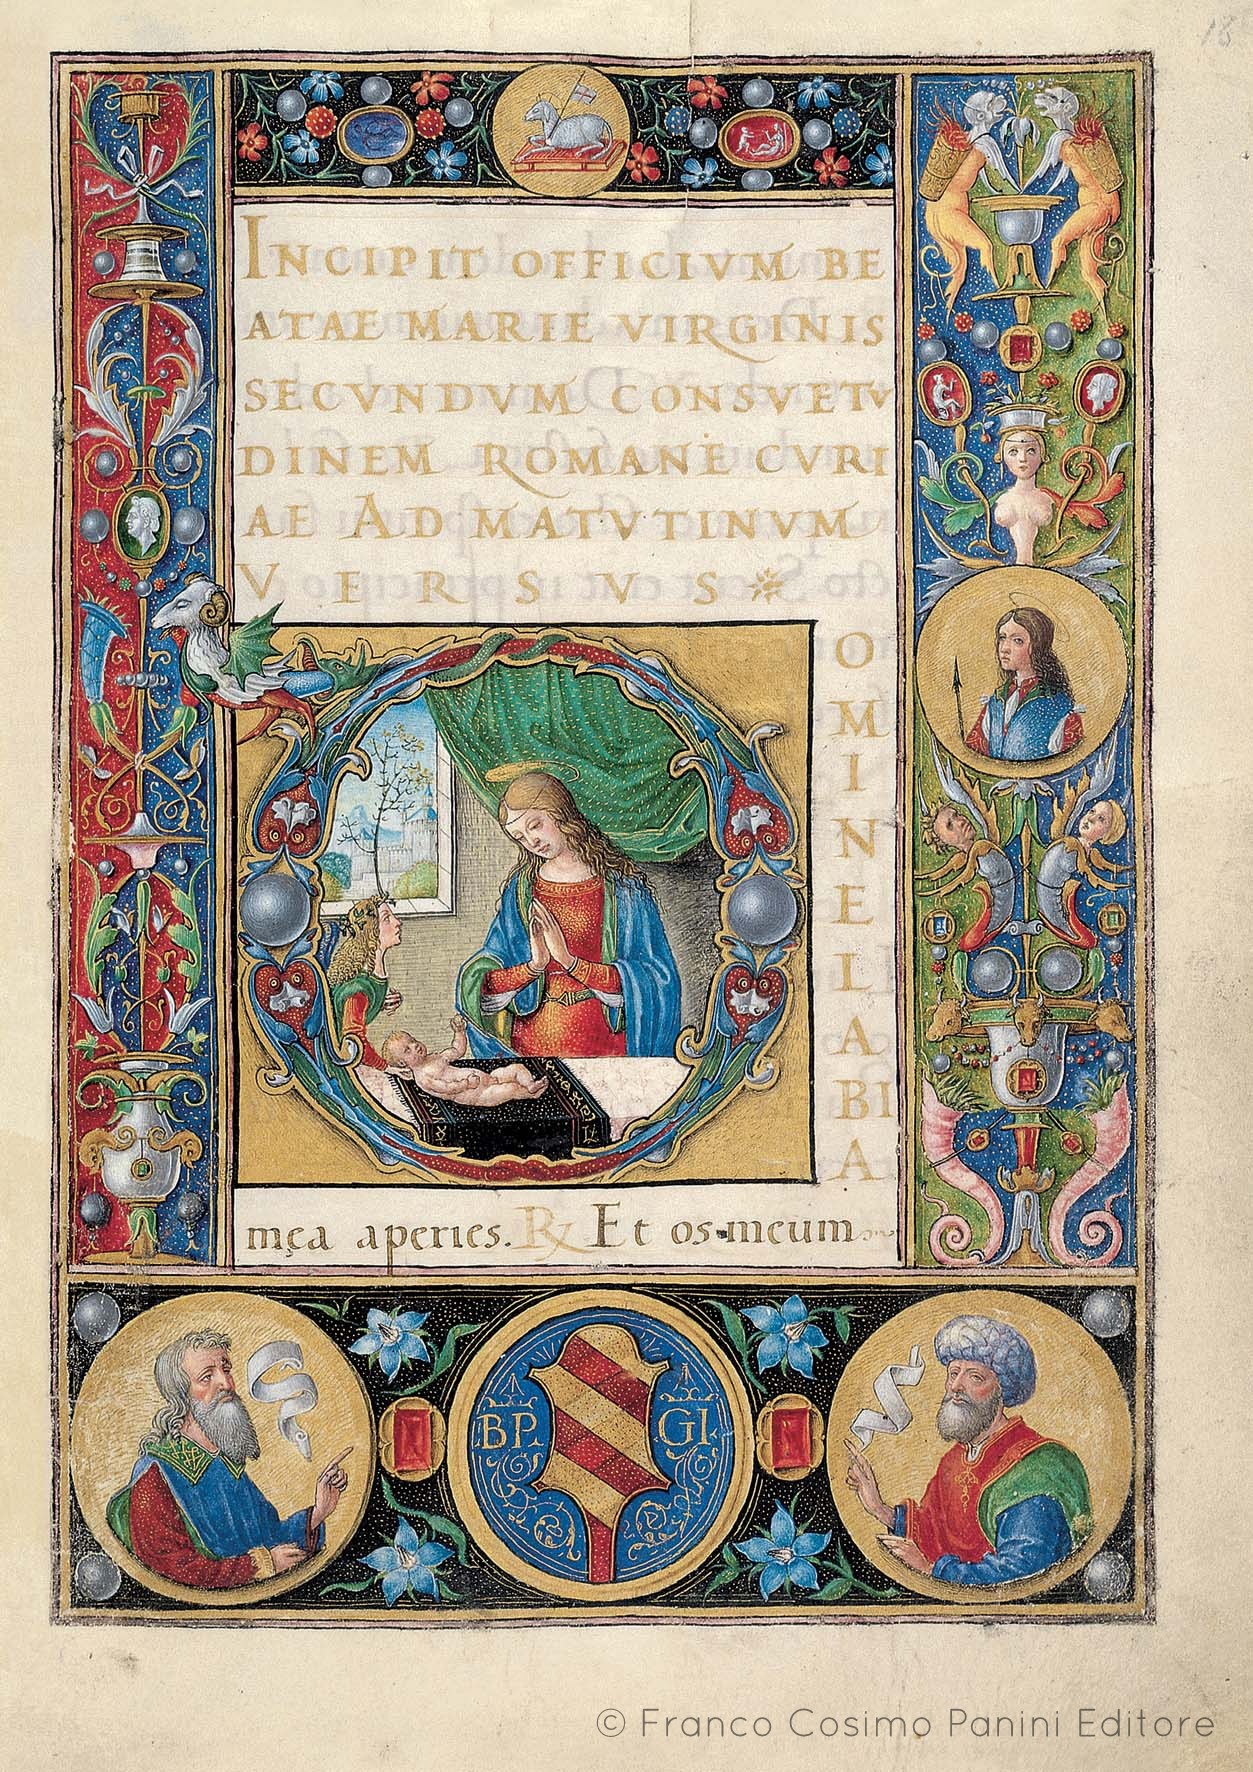 18
INCIPIT OFFICIVM BE
ATAE MARIE VIRGINIS
SECVNDVM CONSVETV
DINEM ROMANE CVRI
AE AD MATVTINVM
VERSVS
DOMINE LABIA
mea aperies. R Et os meum
BP. GI.
© Franco Cosimo Panini Editore